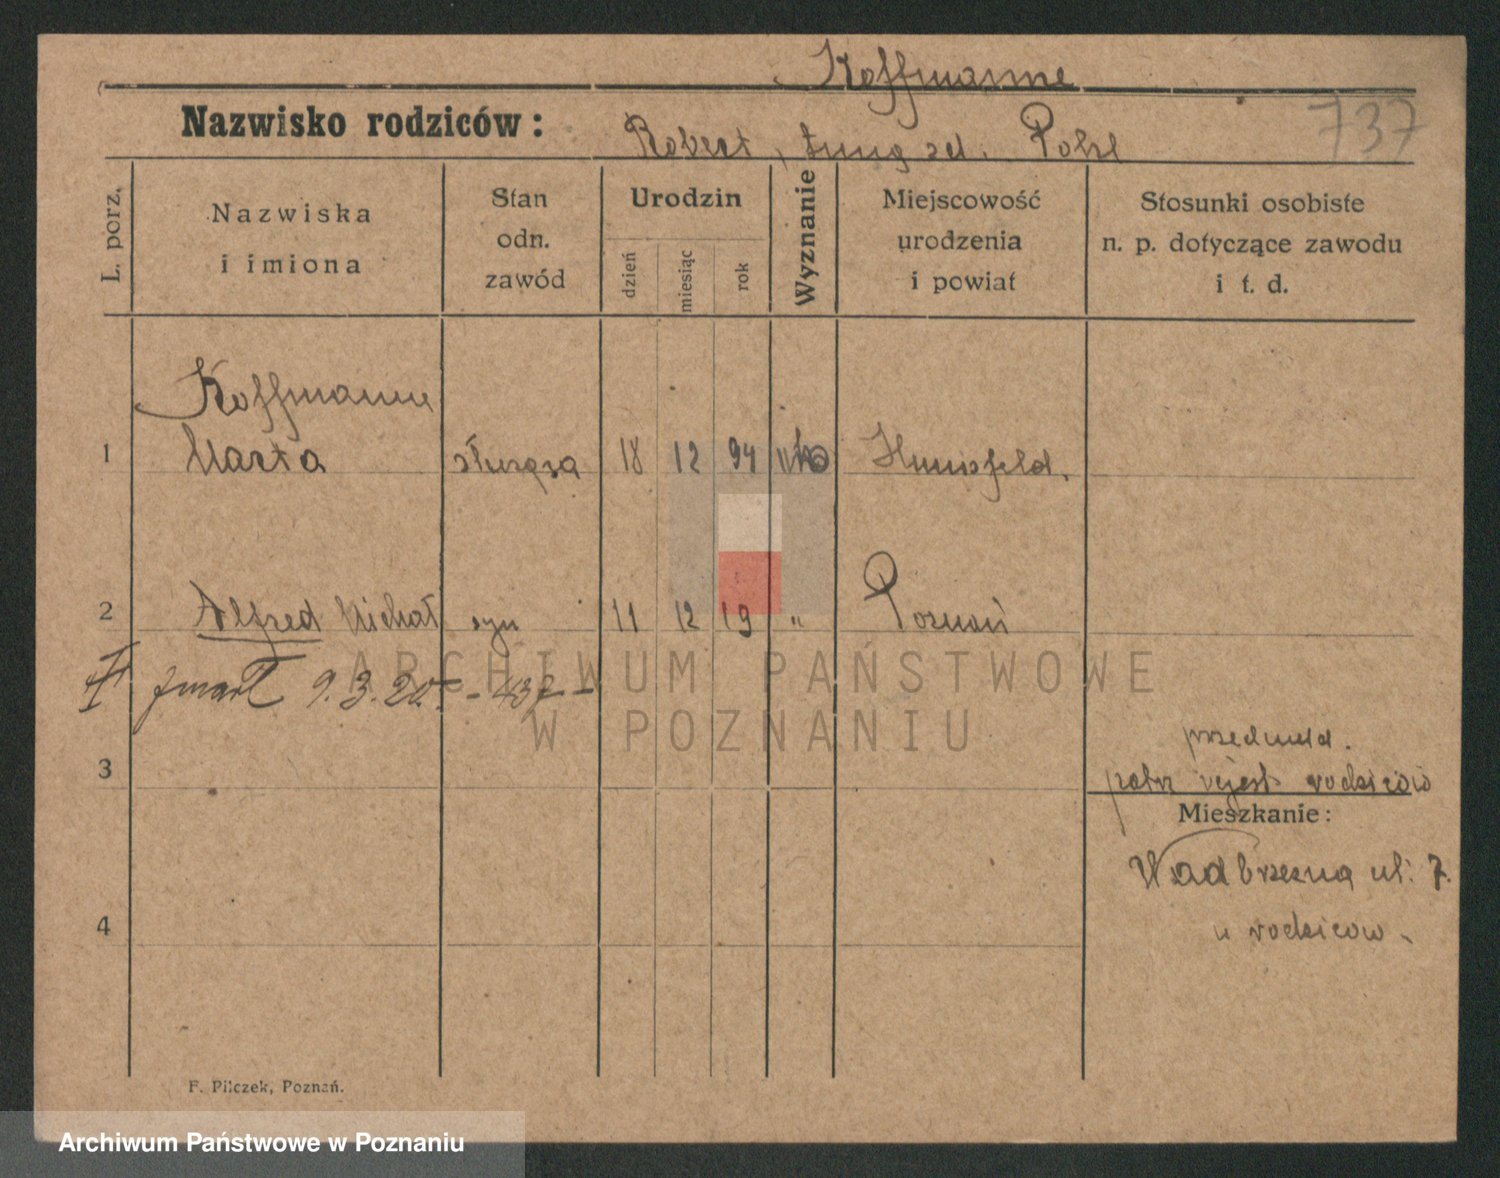 Koffmanne
Nazwisko rodziców:
Robert, Pohl
737
L. porz.
Nazwiska
i imiona
Stan
odn.
zawód
Urodzin
dzień
miesiąc
rok
Wyznanie
Miejscowość
urodzenia
i powiat
Stosunki osobiste
n. p. dotyczące zawodu
i t. d.
Koffmanne
1 Marta służąca 18 12 94 Hunsfeld.
2 Alfred Michał syn 11 12 19 " Poznań
zmarł 9.3.20. - 437 -
ARCHIWUM PAŃSTWOWE
W POZNANIU
3
patrz rejest rodziców
Mieszkanie:
Wadbrzezna ul: 7.
4
u rodziców.
F. Pilczek, Poznań.
Archiwum Państwowe w Poznaniu